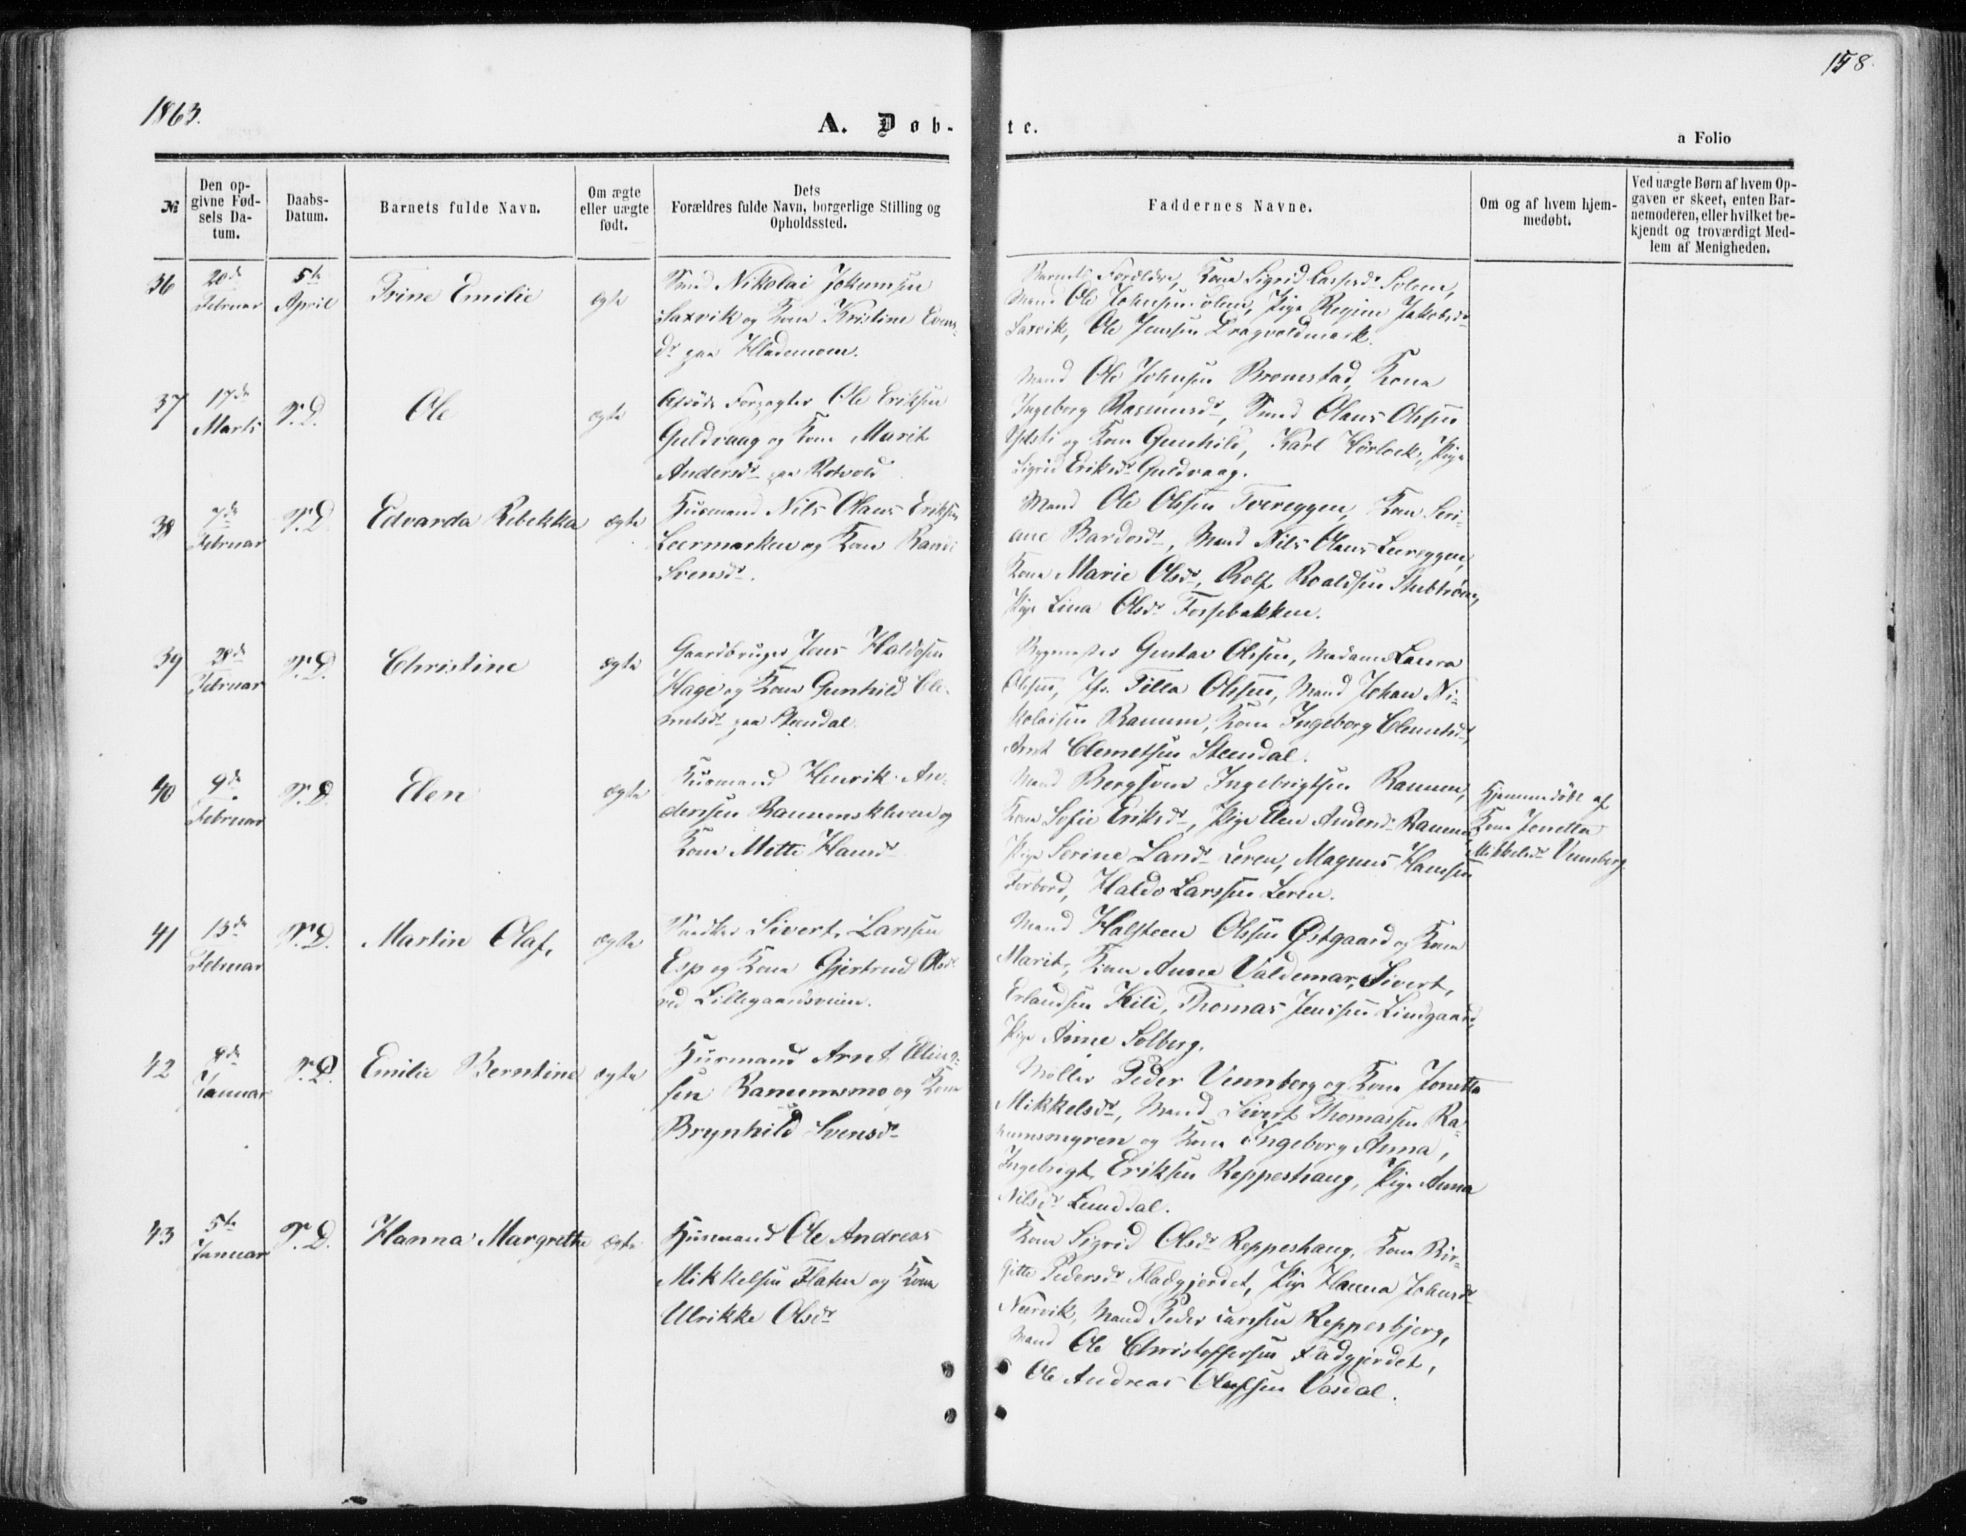 1863.
158.
A. Døb-
te.
a Folio
№
Den op-
givne Fød-
sels Da-
tum.
Daabs-
Datum.
Barnets fulde Navn.
Om ægte
eller uægte
født.
Dets
Forældres fulde Navn, borgerlige Stilling og
Opholdssted.
Faddernes Navne.
Om og af hvem hjem-
medøbt.
Ved uægte Børn af hvem Op-
gaven er skeet, enten Bar-
nemoderen, eller hvilket be-
kjendt og troværdigt Med-
lem af Menigheden.
36
20de
Februar
5te
April
Trine Emilie
egte
Nikolai Johnsen
Saxvik og Kone Kristine Evens-
dr paa Hlademoen.
Barnets Forældre, Kone Sigrid Larsdr Solem,
Mand Ole Johnsen Solem, Pige Regine Jakobsdr
Saxvik, Ole Jensen Dragvoldmark.
37
17de
Marts
S. D.
Ole
egte
Forpagter Ole Eriksen
Guldvaag og Kone Marit
Andersdr paa Rotvold
Mand Ole Johnsen Bromstad, Kone
Ingeborg Rasmusdr, Olaus Olsen
og Kone Gunhild, Karl Hörlock, Pige
Sigrid Eriksdr Guldvaag.
38
7de
Februar
S. D.
Edvarda Rebekka
egte
Husmand Nils Olaus Eriksen
Leermarken og Kone Randi
Svensdr.
Mand Ole Olsen Tvereggen, Kone Seri-
ane Bardosdr, Mand Nils Olaus Leereggen,
Kone Marie Olsdr, Rolf Roaldsen Stubtrøen,
Pige Lina Olsdr Forsebakken.
39
28de
Februar
S. D.
Christine
egte
Gaardbruger Jens Haldosen
Hage og Kone Gunhild Cle-
metsdr paa Steendal.
Bygmester Gustav Olsen, Madame Laura
Olsen, Jfr. Tilla Olsen, Mand Johan Ni-
kolaisen Ranum, Kone Ingeborg Clemetsdr,
Arnt Clemetsen Steendal.
40
9de
Februar
S. D.
Elen
egte
Husmand Henrik An-
dersen Ranumskleven og
Kone Mette Hansdr
Mand Bergsven Ingebrigtsen Ranum,
Kone Sofie Eriksdr, Pige Elen Andersdr Ranum,
Pige Serine Larsdr Leren, Magnus Hansen
Forbord, Haldo Larssen Leren.
Hjemmedöbt af
Kone Jonetta
Mikkelsdr Vennberg.
41
13de
Februar
S. D.
Martin Olaf,
egte
Sivert Larssen
Esp og Kone Gjertrud Olsdr
ved Lillegaardsveien.
Mand Halsteen Olsen Østgaard og Kone
Marit, Kone Anne Valdemar, Sivert
Erlandsen Kili, Thomas Jenssen Lingaard,
Pige Anne Solberg.
42
8de
Januar
S. D.
Emilie Berntine
egte
Husmand Arnt Elling-
sen Ranumsmo og Kone
Brynhild Svensdr
Møller Peder Vennberg og Kone Jonetta
Mikkelsdr, Mand Sivert Thomassen Ra-
numsmyren og Kone Ingeborg Anna,
Ingebrigt Eriksen Reppeshaug, Pige Anna
Nilsdr Lunddal.
43
5te
Januar
S. D.
Hanna Margrethe
egte
Husmand Ole Andreas
Mikkelsen Flaten og Kone
Ulrikke Olsdr
Kone Sigrid Olsdr Reppeshaug, Kone Bir-
gitte Pedersdr Fladgjerdet, Pige Hanna Johnsdr
Nervik, Mand Peder Larssen Reppesbjerg,
Mand Ole Christoffersen Fladgjerdet,
Ole Andreas Olufsen Vasdal.